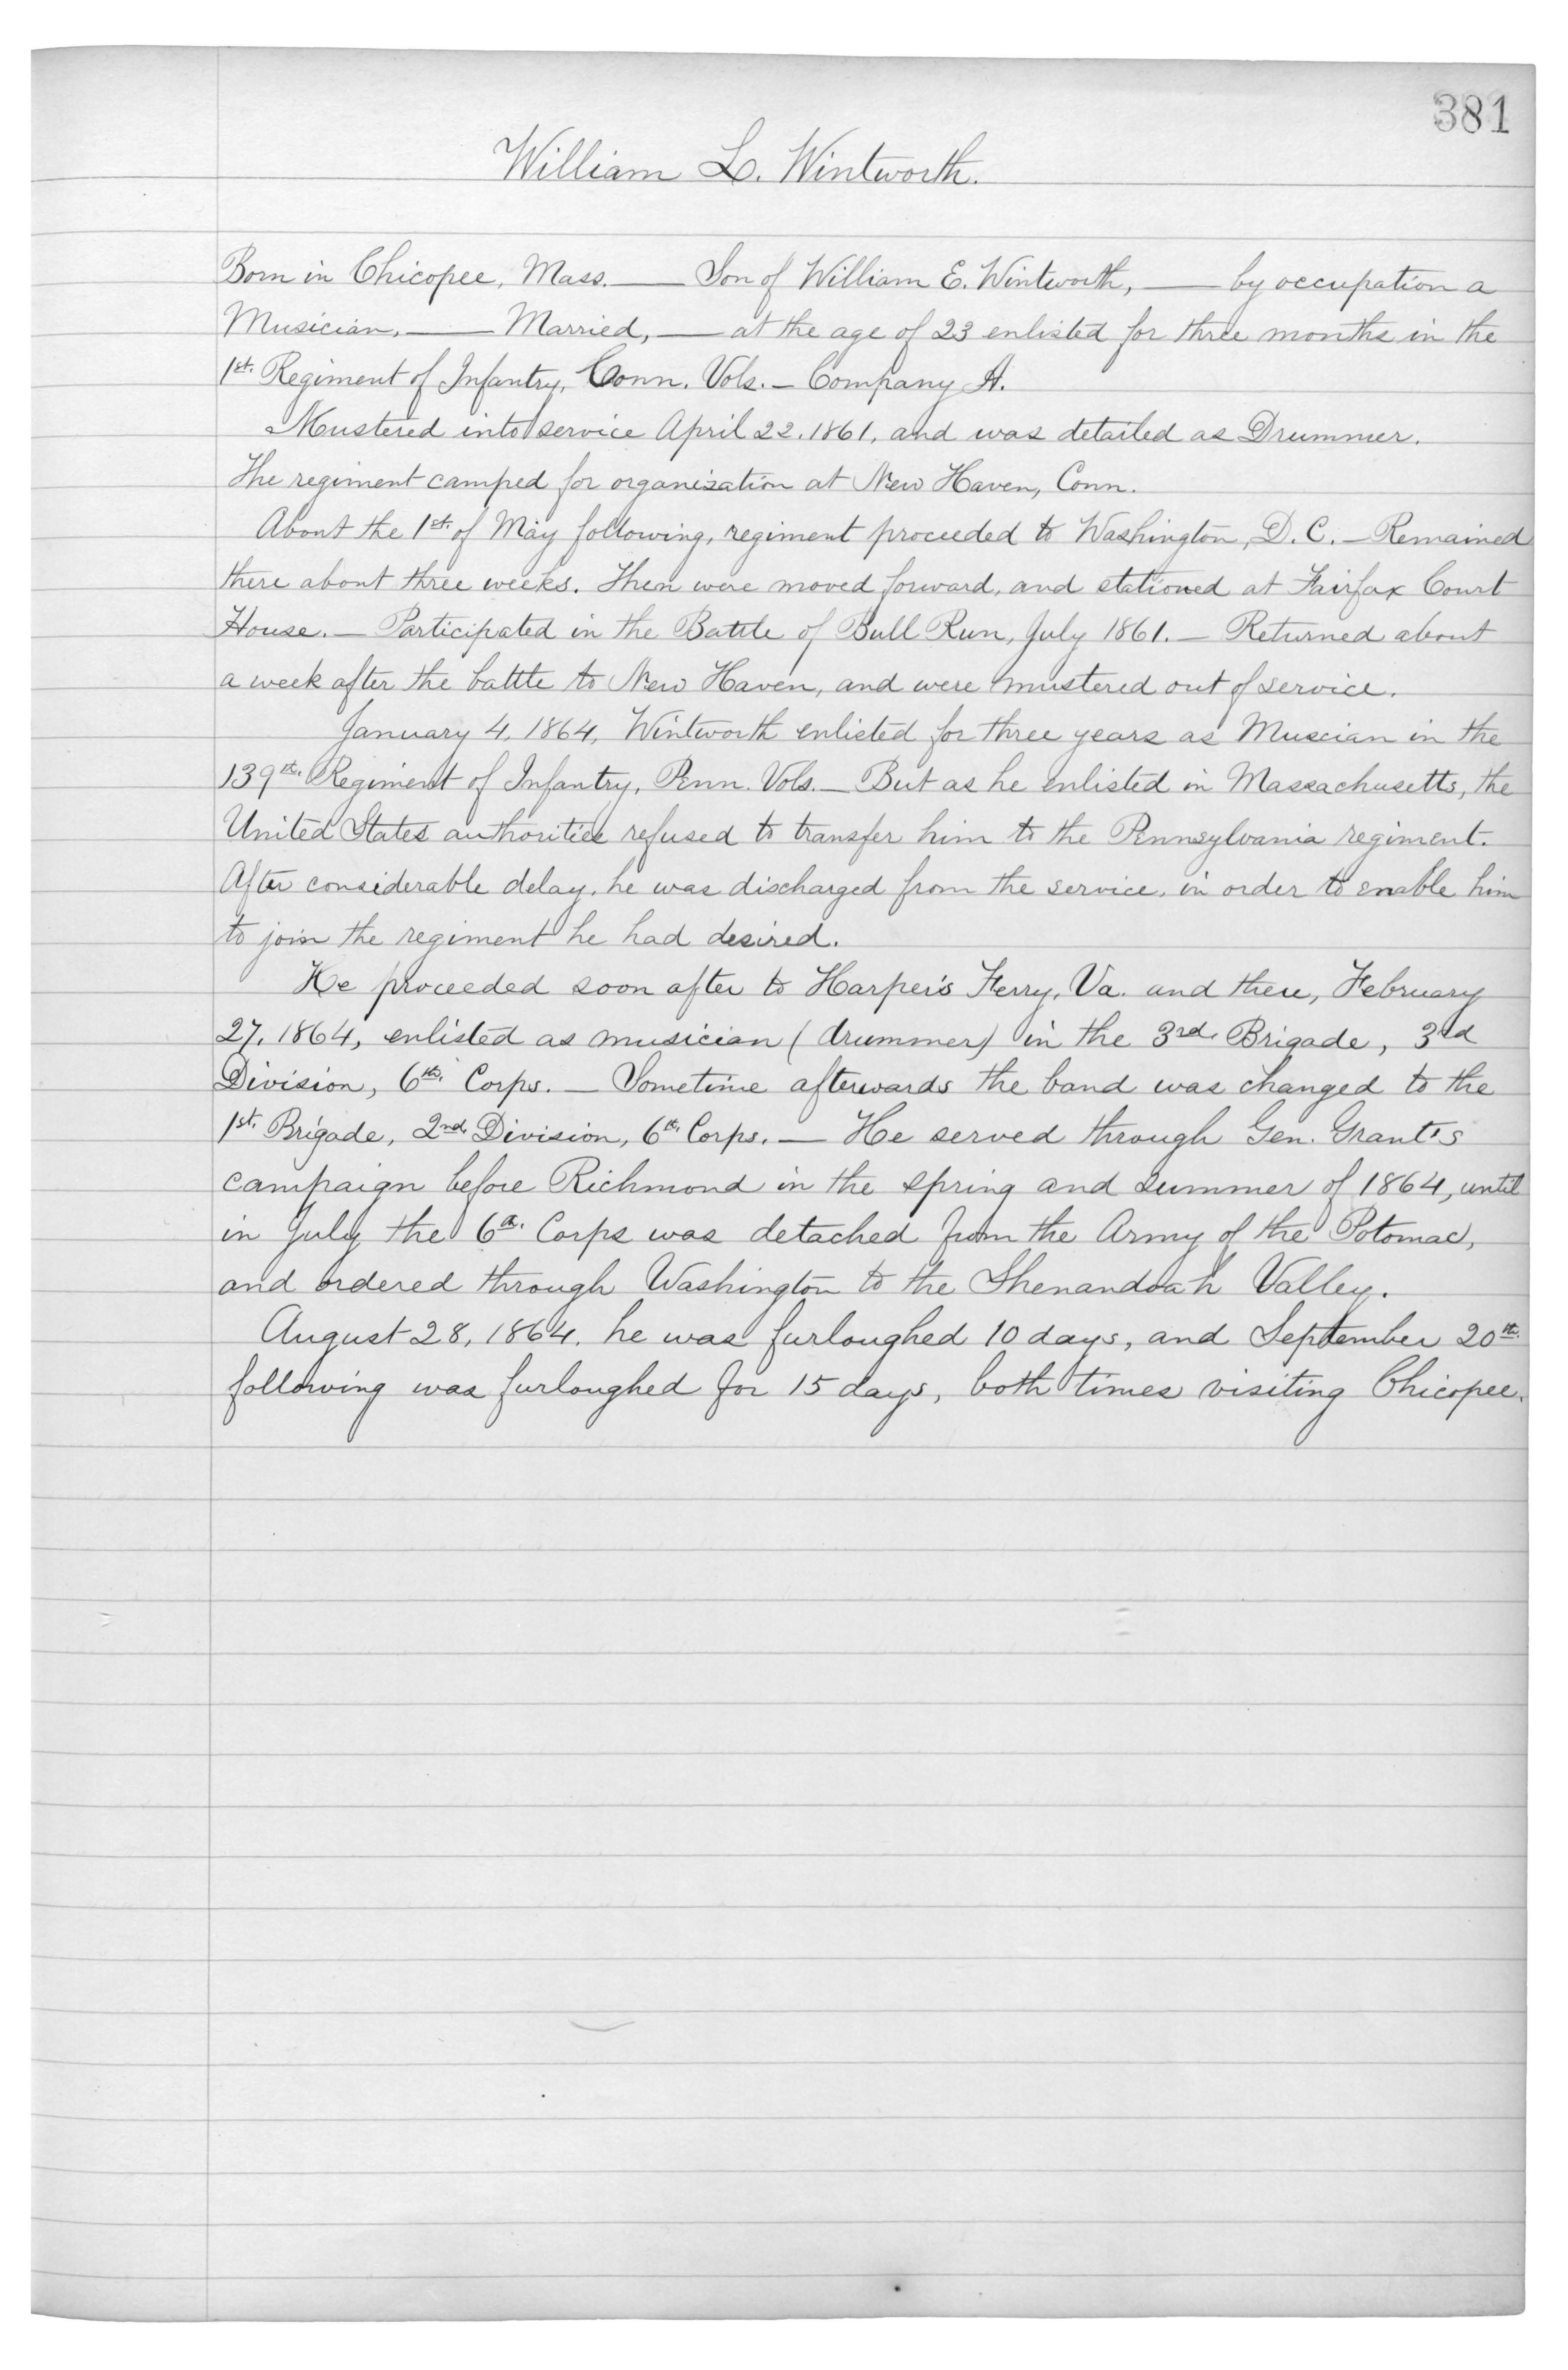 381
William L. Wintworth.
Born in Chicopee, Mass. — Son of William E. Wintworth, — by occupation a
Musician, — Married, — at the age of 23 enlisted for three months in the
1st. Regiment of Infantry, Conn. Vols. — Company A.
Mustered into service April 22. 1861, and was detailed as Drummer.
The regiment camped for organization at New Haven, Conn.
About the 1st. of May following, regiment proceeded to Washington, D. C. — Remained
there about three weeks. Then were moved forward, and stationed at Fairfax Court
House. — Participated in the Battle of Bull Run, July 1861. — Returned about
a week after the battle to New Haven, and were mustered out of service.
January 4, 1864, Wintworth enlisted for three years as Muscian in the
139th. Regiment of Infantry, Penn. Vols. — But as he enlisted in Massachusetts, the
United States authorities refused to transfer him to the Pennsylvania regiment.
After considerable delay, he was discharged from the service, in order to enable him
to join the regiment he had desired.
He proceeded soon after to Harper's Ferry, Va. and there, February
27, 1864, enlisted as musician (drummer) in the 3rd. Brigade, 3rd
Division, 6th. Corps. — Sometime afterwards the band was changed to the
1st. Brigade, 2nd. Division, 6th. Corps. — He served through Gen. Grant's
campaign before Richmond in the spring and summer of 1864, until
in July the 6th. Corps was detached from the Army of the Potomac,
and ordered through Washington to the Shenandoah Valley.
August 28, 1864, he was furloughed 10 days, and September 20th.
following was furloughed for 15 days, both times visiting Chicopee.